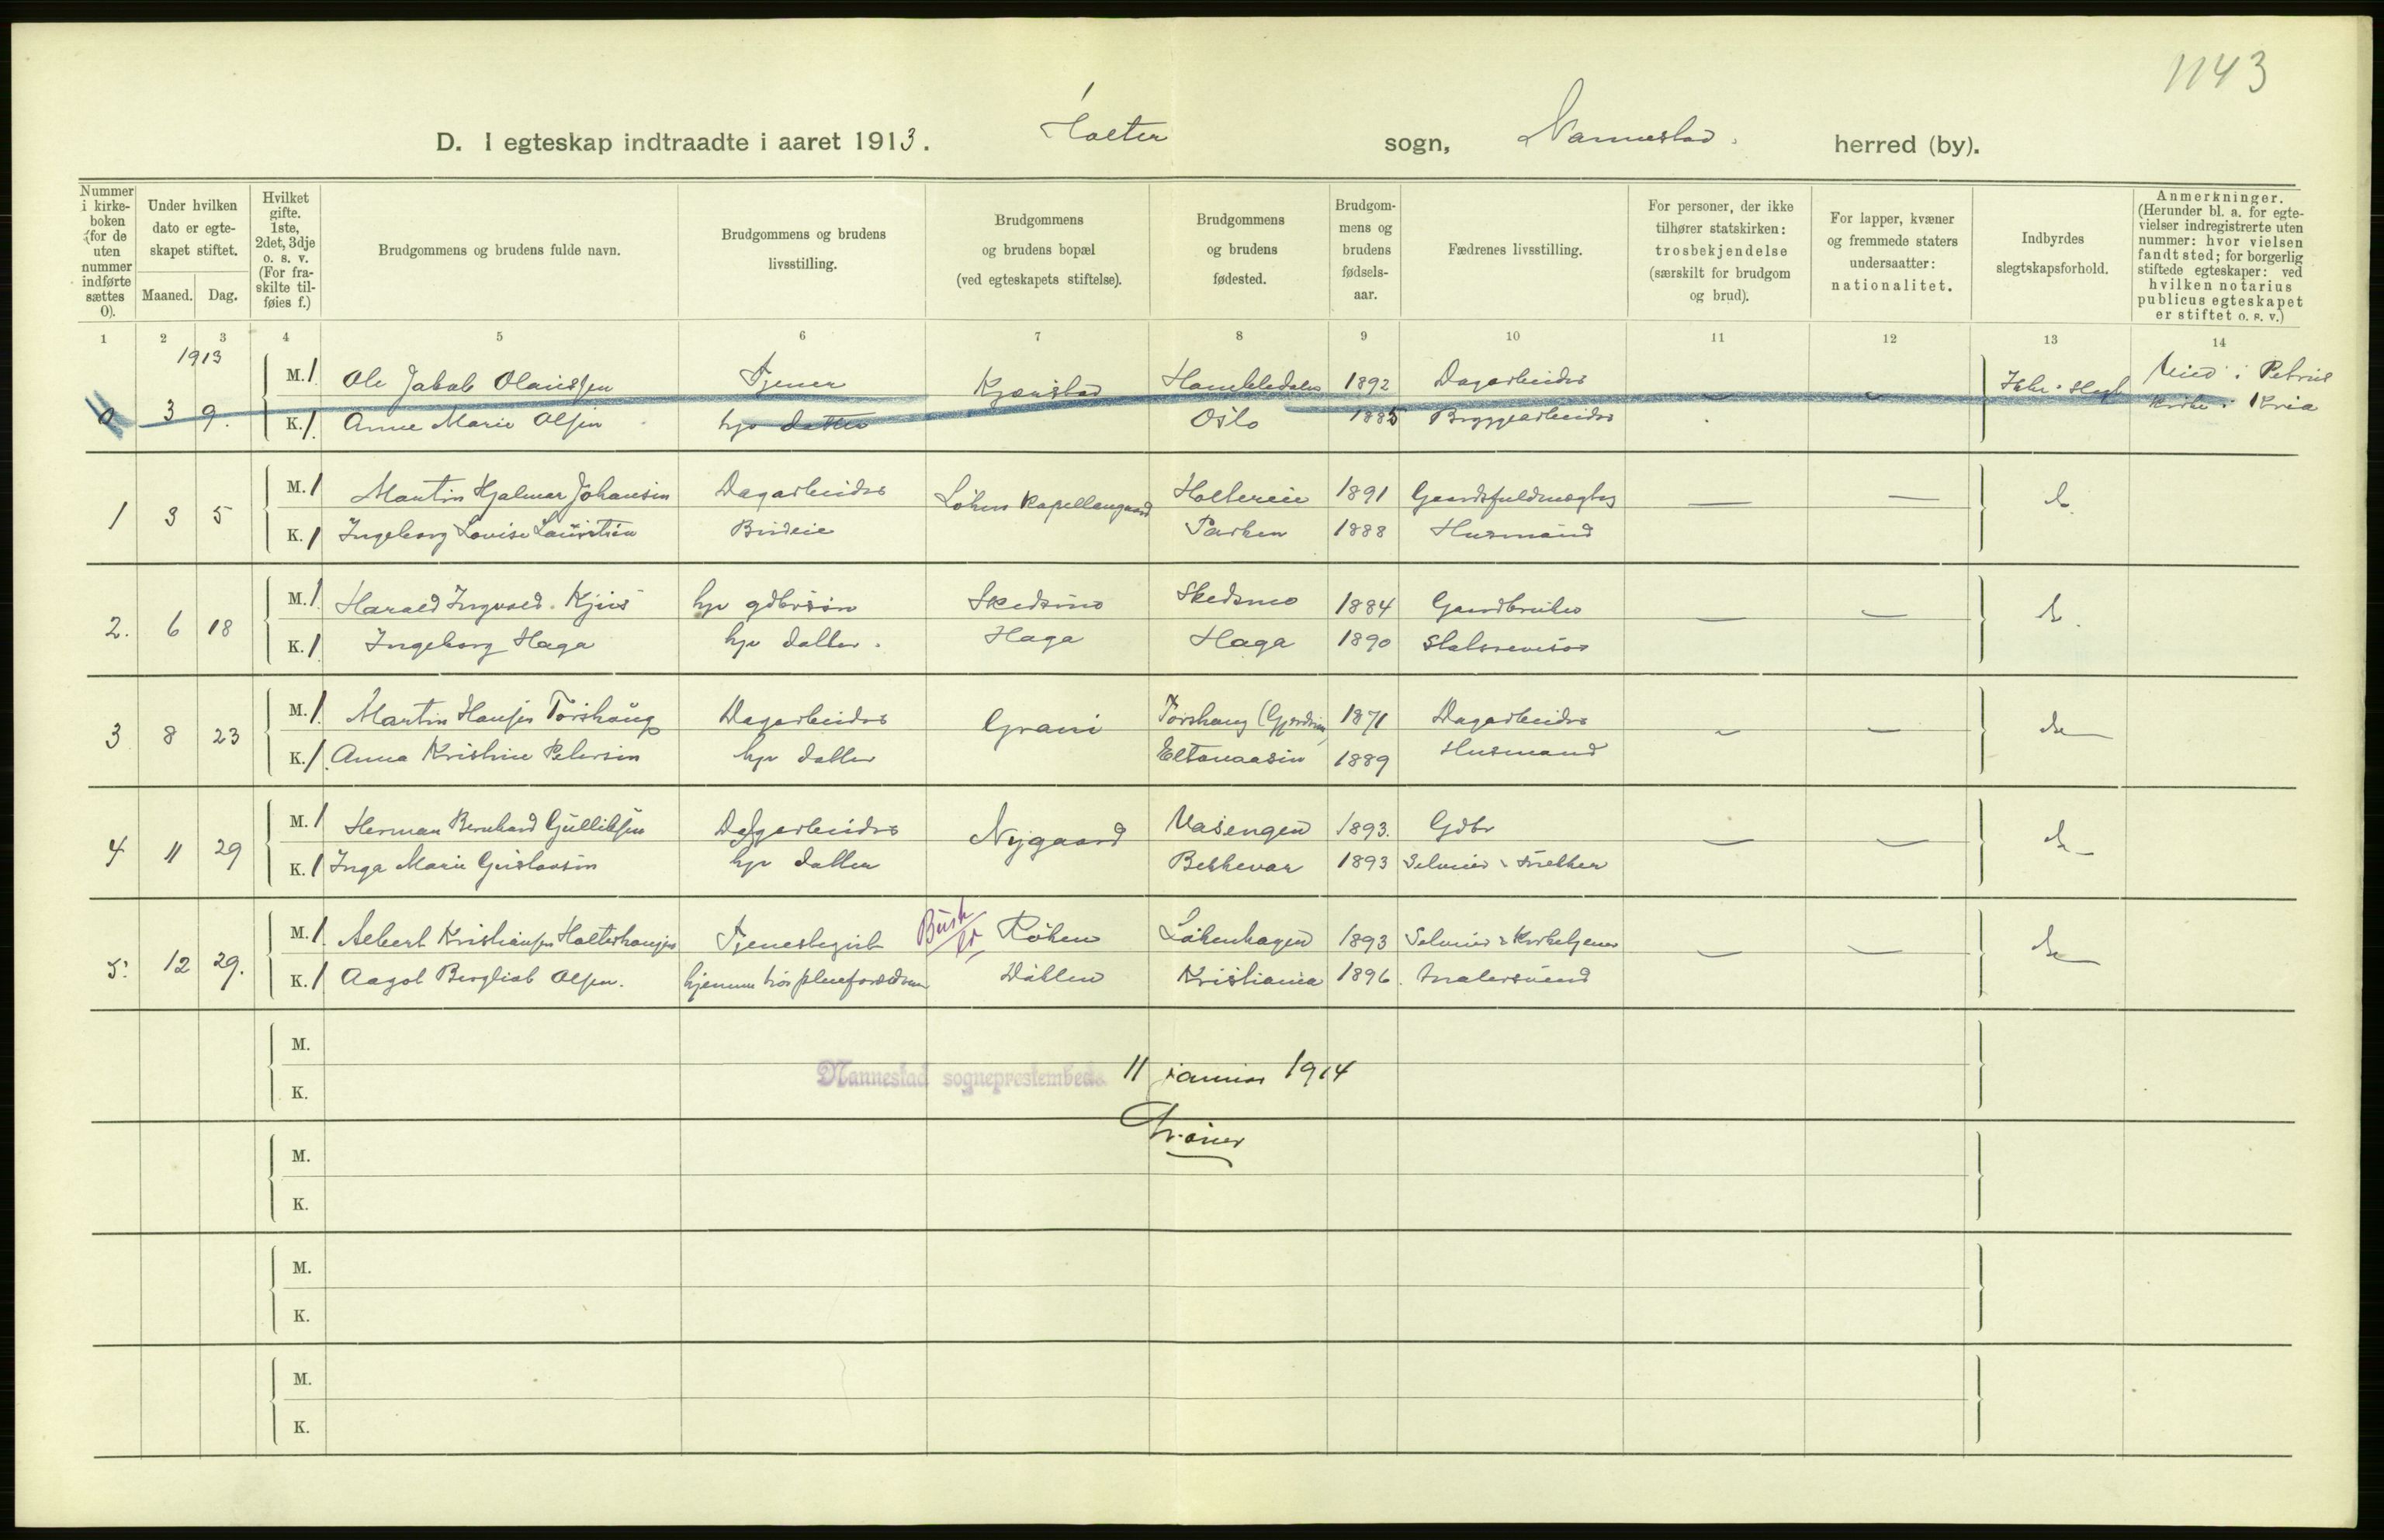 1143
D. I egteskap indtraadte i aaret 1913. Holter sogn, Nannestad. herred (by).
Nummer i kirke-boken (for de uten nummer indførte sættes 0).
Under hvilken dato er egte-skapet stiftet.
Maaned. Dag.
Hvilket gifte. 1ste, 2det, 3dje o. s. v. (For fra-skilte til-føies f.)
Brudgommens og brudens fulde navn.
Brudgommens og brudens livsstilling.
Brudgommens og brudens bopæl (ved egteskapets stiftelse).
Brudgommens og brudens fødested.
Brudgom-mens og brudens fødsels-aar.
Fædrenes livsstilling.
For personer, der ikke tilhører statskirken: trosbekjendelse (særskilt for brudgom og brud).
For lapper, kvæner og fremmede staters undersaatter: nationalitet.
Indbyrdes slegtskapsforhold.
Anmerkninger. (Herunder bl. a. for egte-vielser indregistrerte uten nummer: hvor vielsen fandt sted; for borgerlig stiftede egteskaper: ved hvilken notarius publicus egteskapet er stiftet o. s. v.)
1 2 3 4 5 6 7 8 9 10 11 12 13 14
1913
0 3 9. M. 1. Ole Jakob Olaussen Tjener Kjønstad 1892 Dagarbeider Ikke Viet i Petrus
K. 1. Anne Marie Olsen hjv datter Oslo 1885 Bryggearbeider kirke i Kria
1 3 5 M. 1 Martin Hjalmar Johansen Dagarbeider Løken Kapellangaard Holtereie 1891 Gaardsfuldmægtig — — do
K. 1 Ingeborg Lovise Budeie Parken 1888 Husmand
2. 6 18 M. 1. Harald Ingvald Kjus hjv gdbrsøn Skedsmo Skedsmo 1884 Gaardbruker — — do.
K. 1. Ingeborg Haga hjv datter. Haga Haga 1890 Statsrevisor
3 8 23 M. 1. Martin Hansen Torshaug Dagarbeider Grani Torshaug 1871 Dagarbeider — — do
K. 1. Anna Kristine Petersen hjv datter 1889 Husmand
4 11 29 M. 1 Herman Bernhard Gulliksen Dagarbeider Nygaard Vasengen 1893. Gdbr — — do
K. 1 Inga Marie Gustavsen hjv datter Bekkevar 1893 Selveier & snekker
5. 12 29. M. 1. Albert Kristiansen Holterhaugen Tjenestegut Busk Røken Løkenhagen 1893 Selveier & Kirketjener — — do
K. 1 Aagot Bergliot Olsen. hjemme hos pleieforældrene Døhlen Kristiania 1896. Malersvend
M.
Nannestad sogneprestembede 11 januar 1914
K.
M.
K.
M.
K.
M.
K.